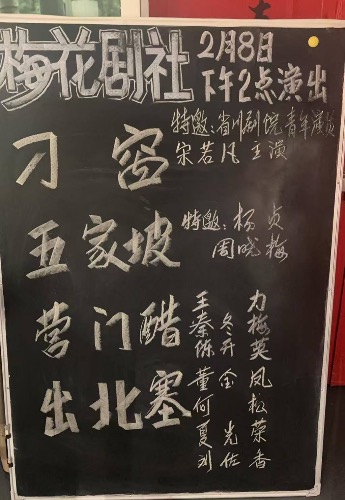 梅花剧社
2月8日
下午2点演出
特邀:省川剧院青年演员
宋若凡 主演
刁窗
五家坡
特邀:杨贞
周晓梅
营门醋
出北塞
王 力
秦冬梅
陈开英
董金凤
何 松
夏光荣
刘佐香